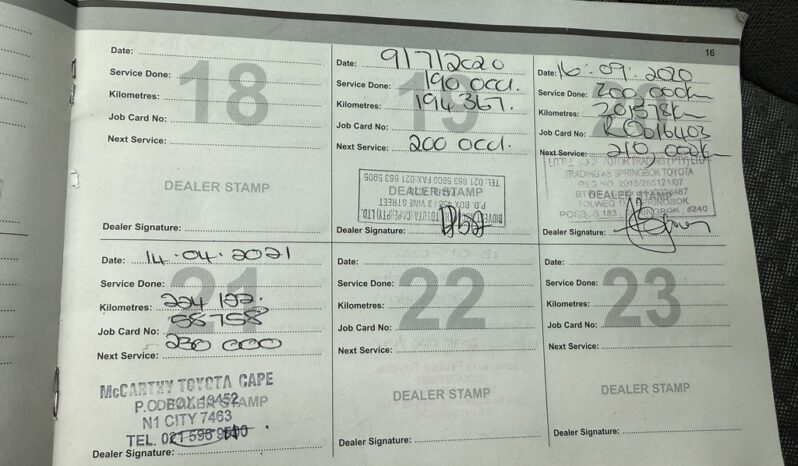 16
18
Date:
Service Done:
Kilometres:
Job Card No:
Next Service:
DEALER STAMP
Dealer Signature:
19
Date: 9/7/2020
Service Done: 190 000.
Kilometres: 194 367.
Job Card No:
Next Service: 200 000.
DEALER STAMP
TOYOTA (CAPE) (PTY) LTD.
P.O. BOX 13 VINE STREET
TEL: 021 863 5900 FAX: 021 863 5905
Dealer Signature:
Date: 16.09.2020
Service Done: 200 000km
Kilometres: 201578km
Job Card No: R0016403
Next Service: 210,000km
TRADING AS SPRINGBOK TOYOTA
DEALER STAMP
Dealer Signature:
21
Date: 14.04.2021
Service Done:
Kilometres: 224 192.
Job Card No: 58758
Next Service: 230 000
McCARTHY TOYOTA CAPE
DEALER STAMP
N1 CITY 7463
Dealer Signature:
22
Date:
Service Done:
Kilometres:
Job Card No:
Next Service:
DEALER STAMP
Dealer Signature:
23
Date:
Service Done:
Kilometres:
Job Card No:
Next Service:
DEALER STAMP
Dealer Signature: